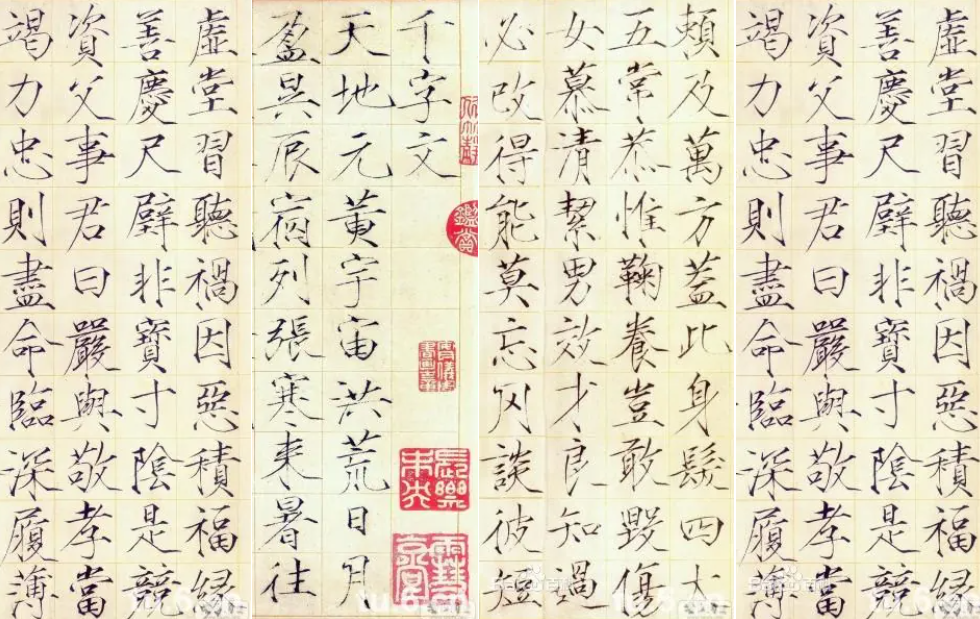 虛堂習聽禍因惡積福緣
善慶尺璧非寶寸陰是競
資父事君曰嚴與敬孝當
竭力忠則盡命臨深履薄
賴及萬方蓋此身髮四大
五常恭惟鞠養豈敢毀傷
女慕清絜男效才良知過
必改得能莫忘罔談彼短
千字文
天地元黃宇宙洪荒日月
盈昃辰宿列張寒来暑往
鑑賞
虛堂習聽禍因惡積福緣
善慶尺璧非寶寸陰是競
資父事君曰嚴與敬孝當
竭力忠則盡命臨深履薄